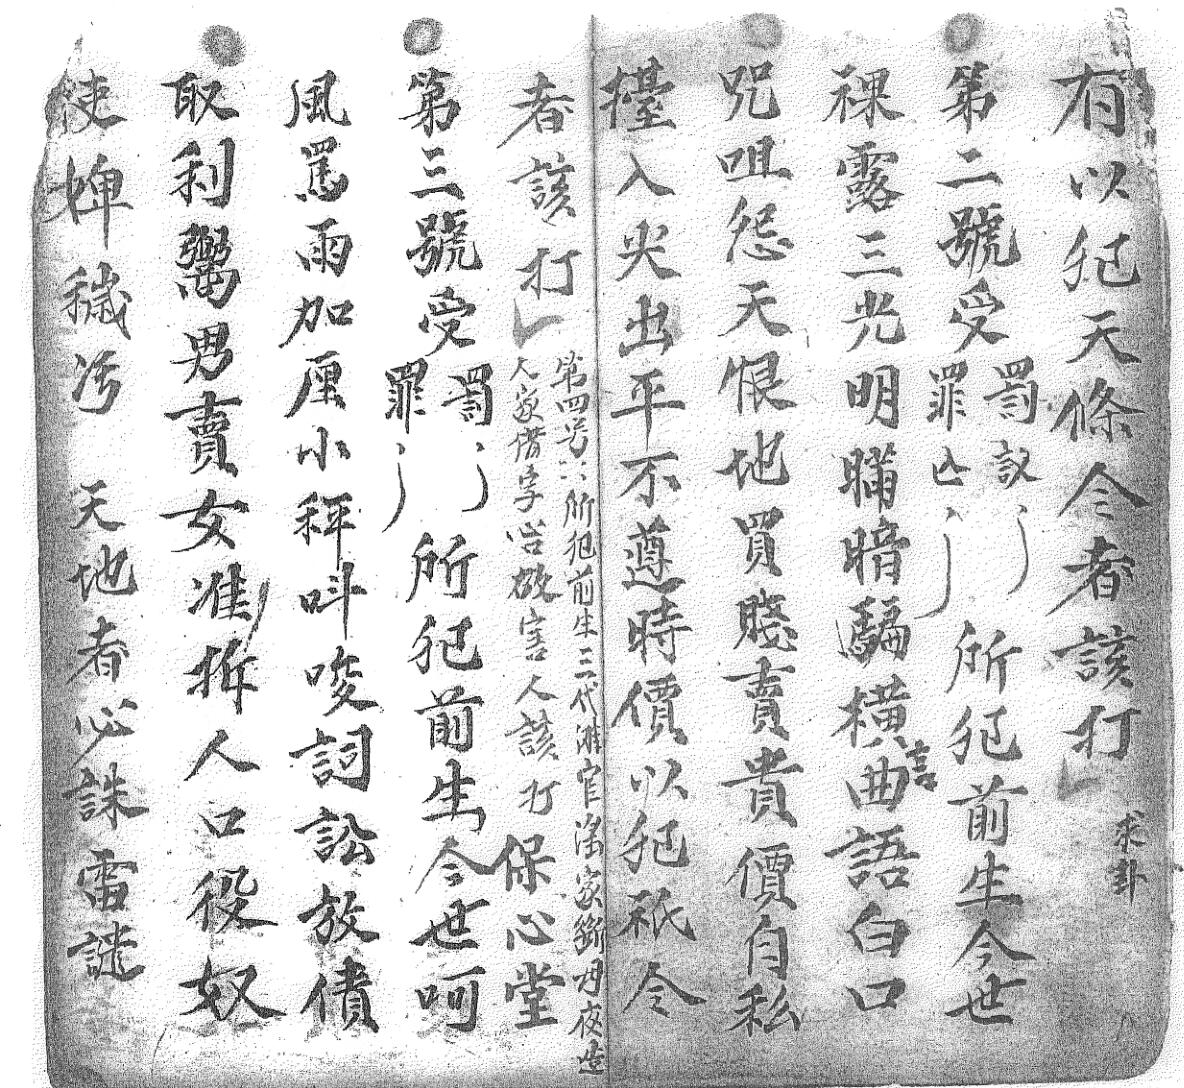 有以犯天條令者該打
求卦
第二號受罰罪所犯前生今世
裸露三光明瞞暗騙橫言曲語白口
咒咀怨天恨地買賤賣貴價自私
擡入尖出平不遵時價以犯祇令
者該打
第四号所犯前生三代
人家借字害人該打
保心堂
第三號受罰罪所犯前生今世呵
風罵雨加厘小秤呌唆詞訟放債
取利鬻男賣女准拆人口役奴
使婢穢汚 天地者必誅雷